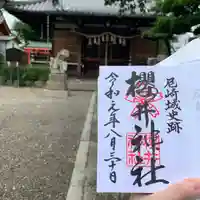 尼崎城史跡
櫻井神社
令和元年八月三十日